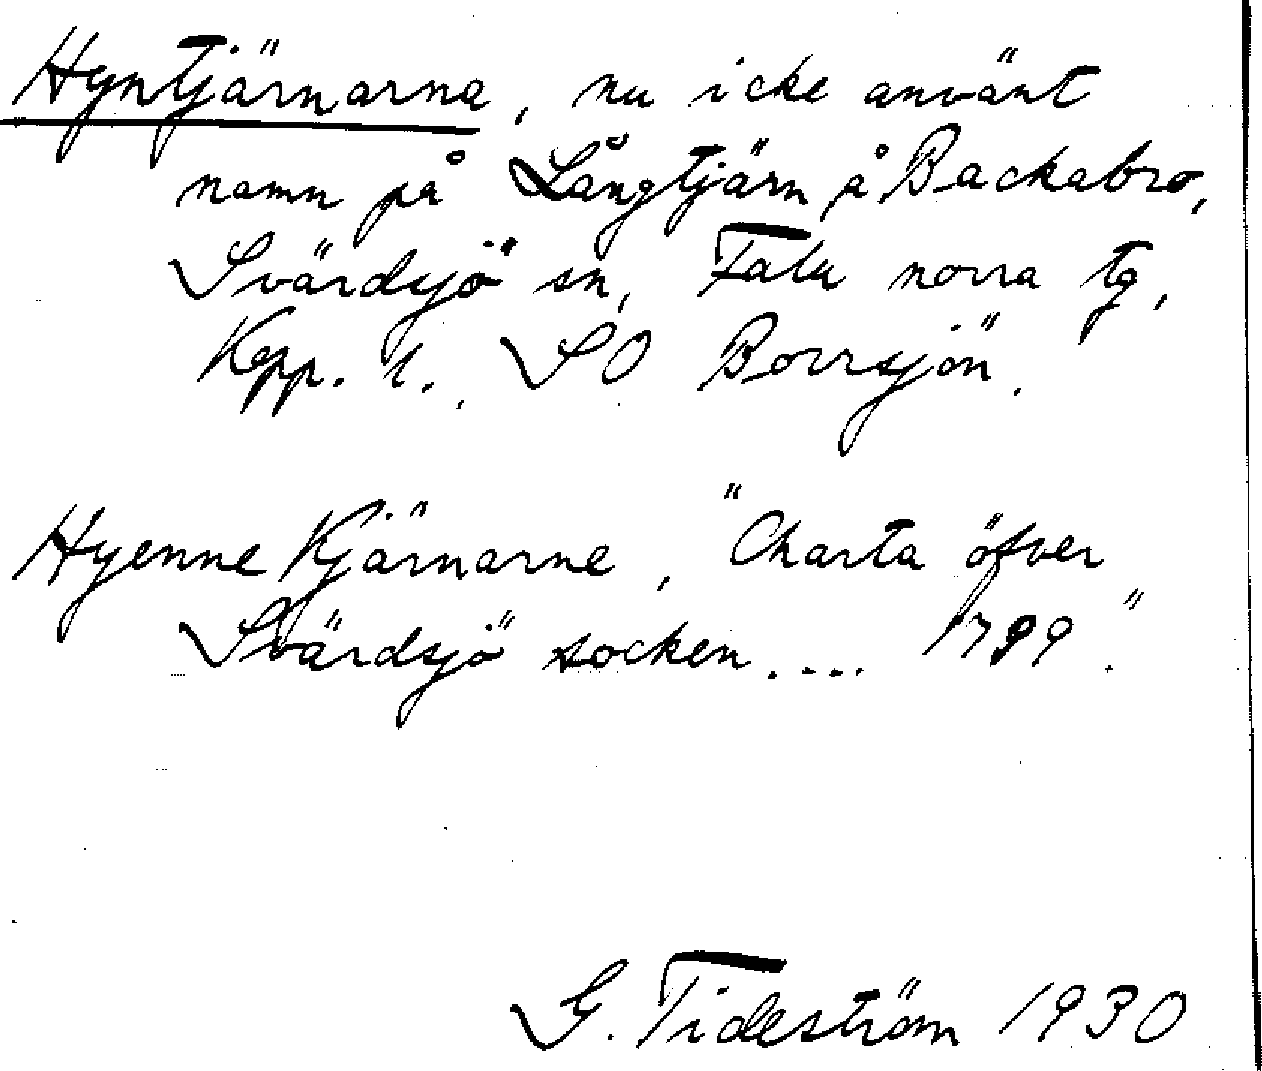 Hyntjärnarna, nu icke använt
namn på Långtjärn å Backabro,
Svärdsjö sn, Falu norra tg,
Kopp. l. SO Borrsjön.
Hyenne Kjärnarne, "Charta öfver
Svärdsjö socken .... 1799."
G. Tideström 1930